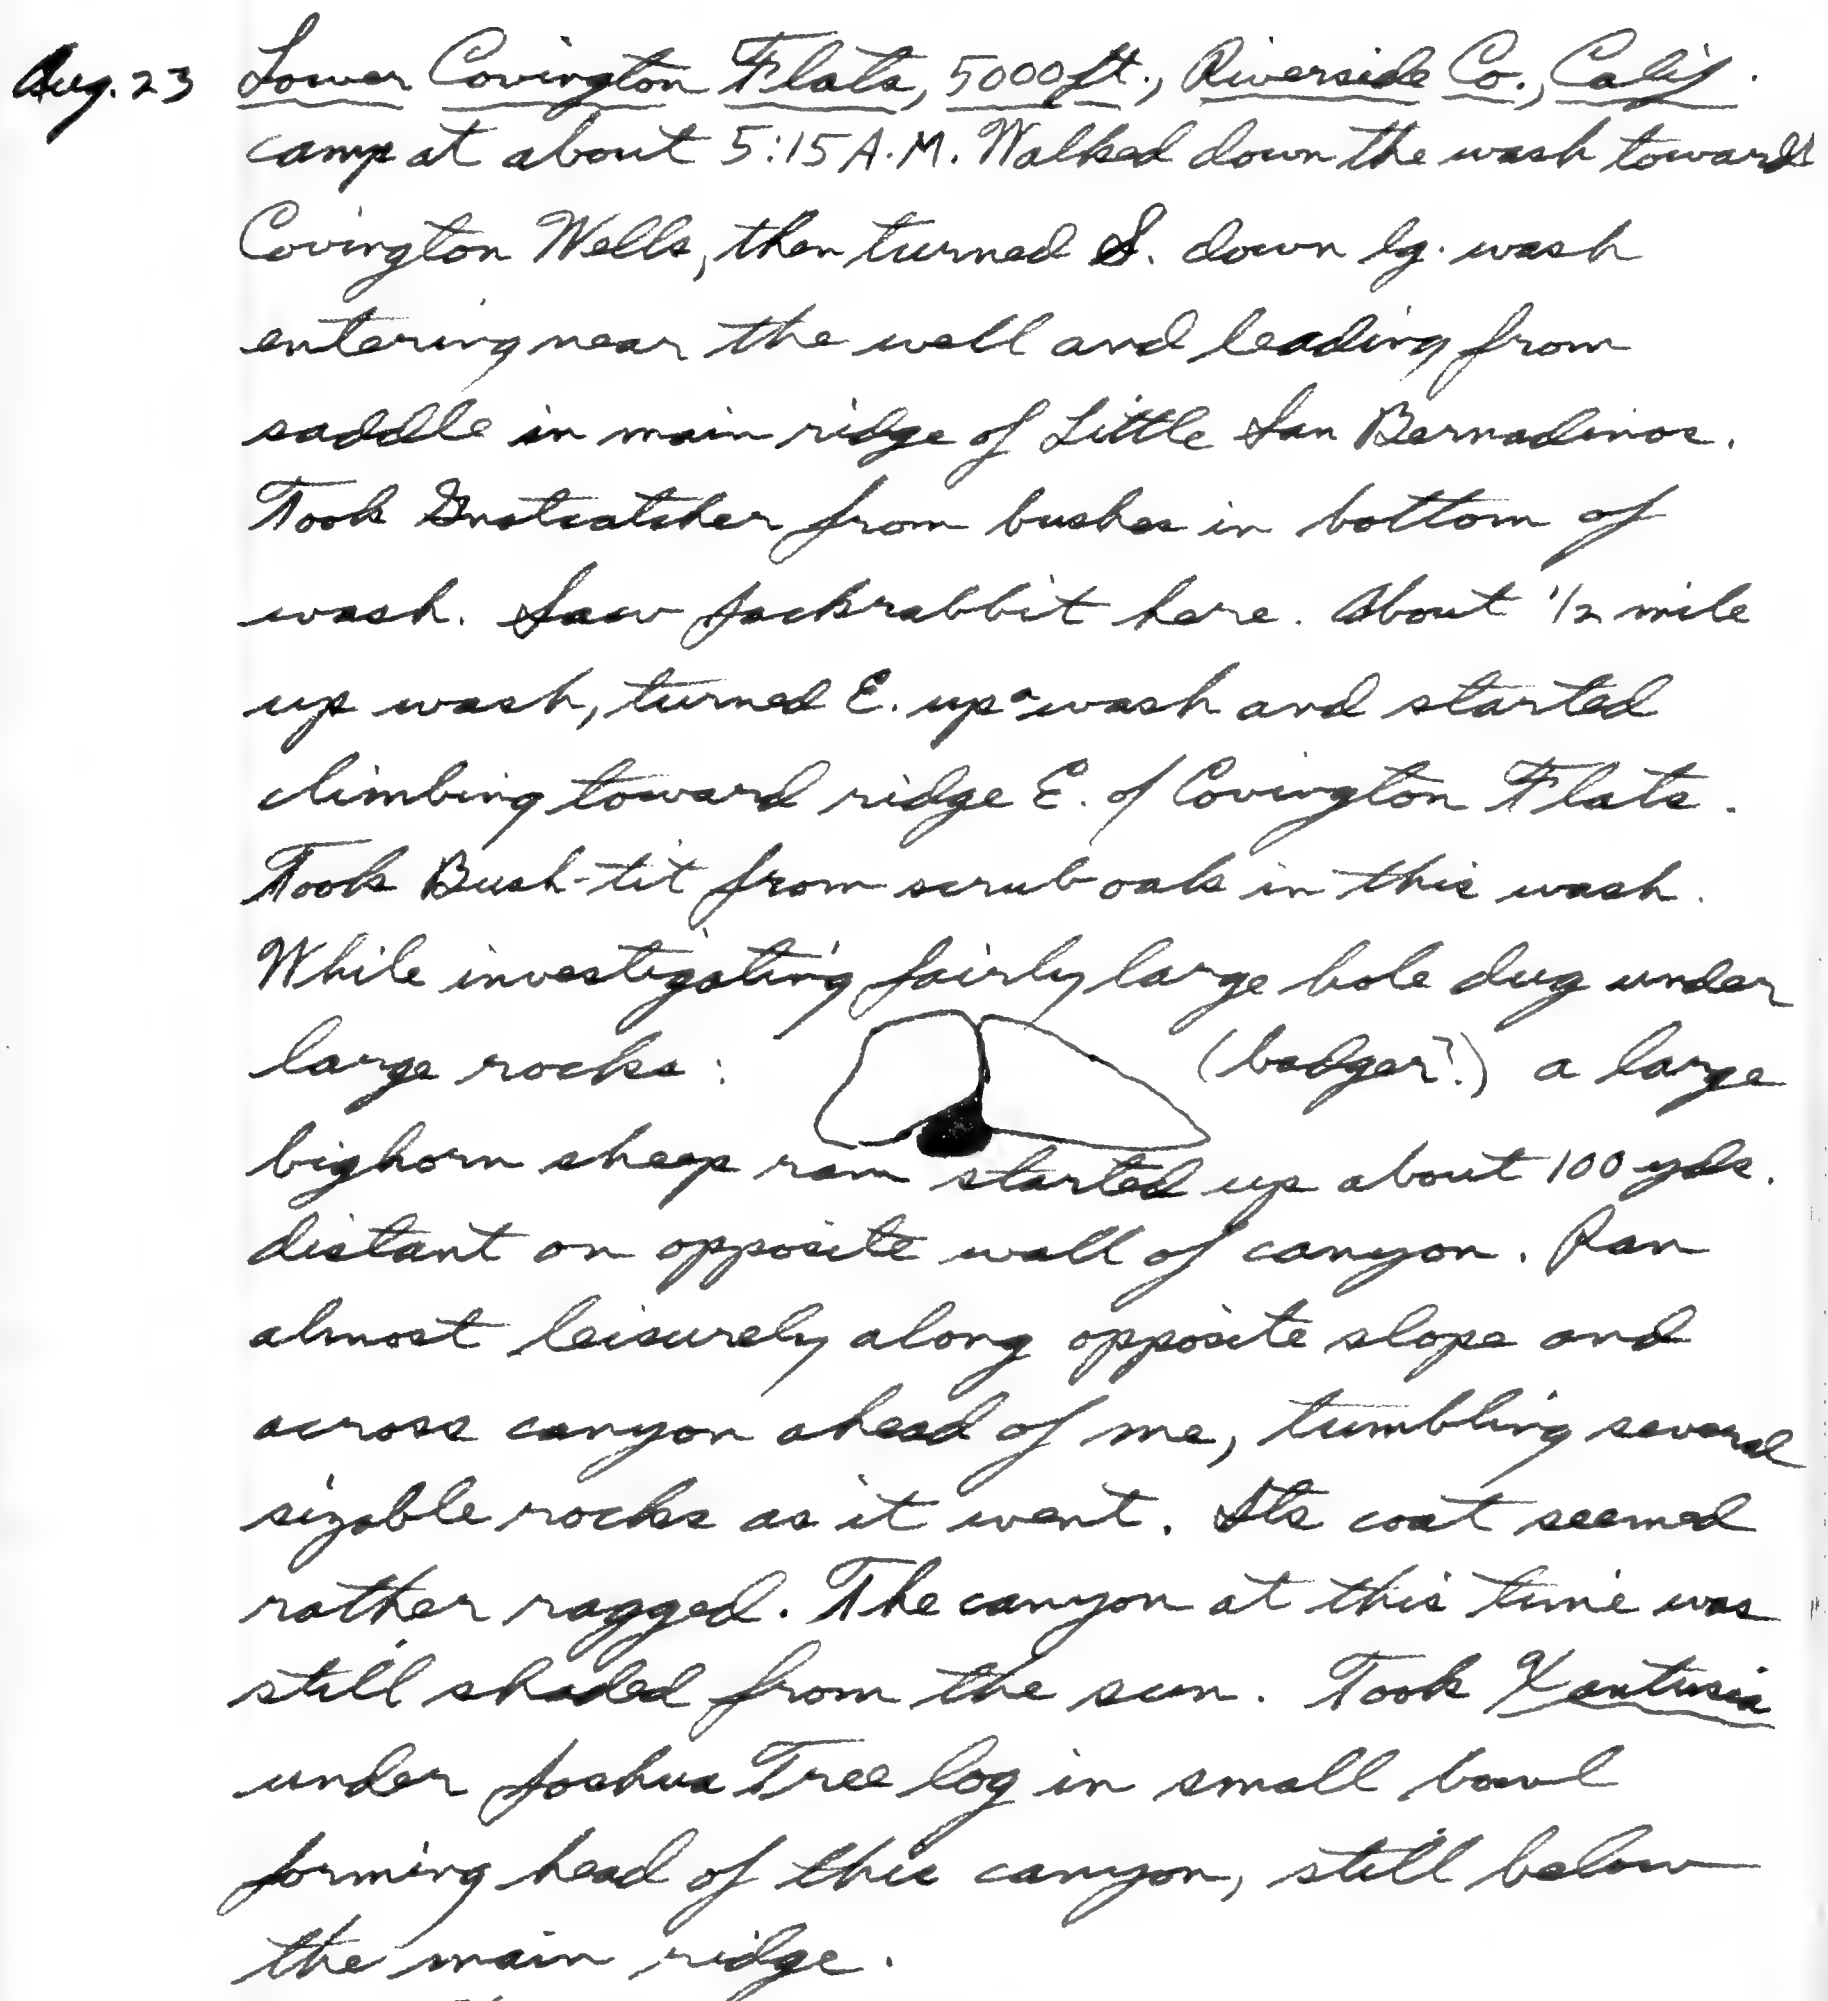 Aug. 23 Lower Covington Flats, 5000 ft., Riverside Co., Calif.
camp at about 5:15 A.M. Walked down the wash towards
Covington Wells, then turned S. down lg. wash
entering near the well and leading from
saddle in main ridge of Little San Bernadinos.
Took Gnatcatcher from bushes in bottom of
wash. Saw Jackrabbit here. About 1/2 mile
up wash, turned E. up a wash and started
climbing toward ridge E. of Covington Flats.
Took Bush-tit from scrub oak in this wash.
While investigating fairly large hole dug under
large rocks: (badger?) a large
bighorn sheep ram started up about 100 yds.
distant on opposite wall of canyon. Ran
almost leisurely along opposite slope and
across canyon ahead of me, tumbling several
sizable rocks as it went. Its coat seemed
rather ragged. The canyon at this time was
still shaded from the sun. Took Xantusia
under Joshua Tree log in small bowl
forming head of this canyon, still below
the main ridge.